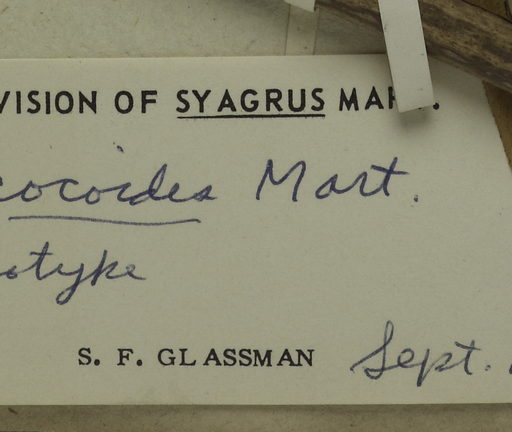 VISION OF SYAGRUS MART.
cocoides Mart.
otype
S. F. GLASSMAN Sept.